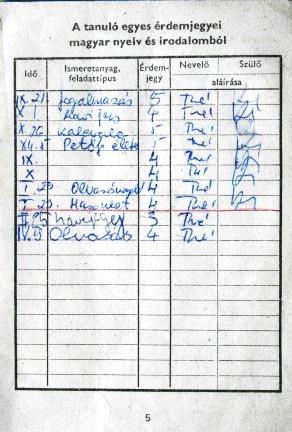 A tanuló egyes érdemjegyei
magyar nyelv és irodalomból
Idő Ismeretanyag, feladattípus Érdemjegy Nevelő Szülő
aláírása
IX. 21. fogalmazás 5 Thé
X. 1 4 Thé
X. 26 5 Thé
XII. 5 Petőfi élete 5 Thé
IX. 4 Thé
X 4 Thé
I. 29 Olvasónapló 4 Thé
I. 29. 4 Thé
3 Thé
IV. 9 Olvasás 4 Thé
5